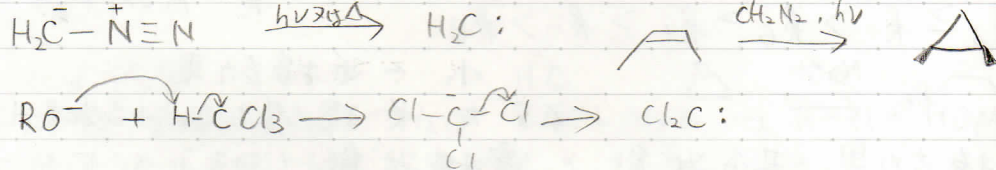 H₂C⁻–N⁺≡N hν又はΔ→ H₂C: CH₂N₂, hν →
RO⁻ + H–CCl₃ → Cl–C⁻–Cl → Cl₂C:
Cl